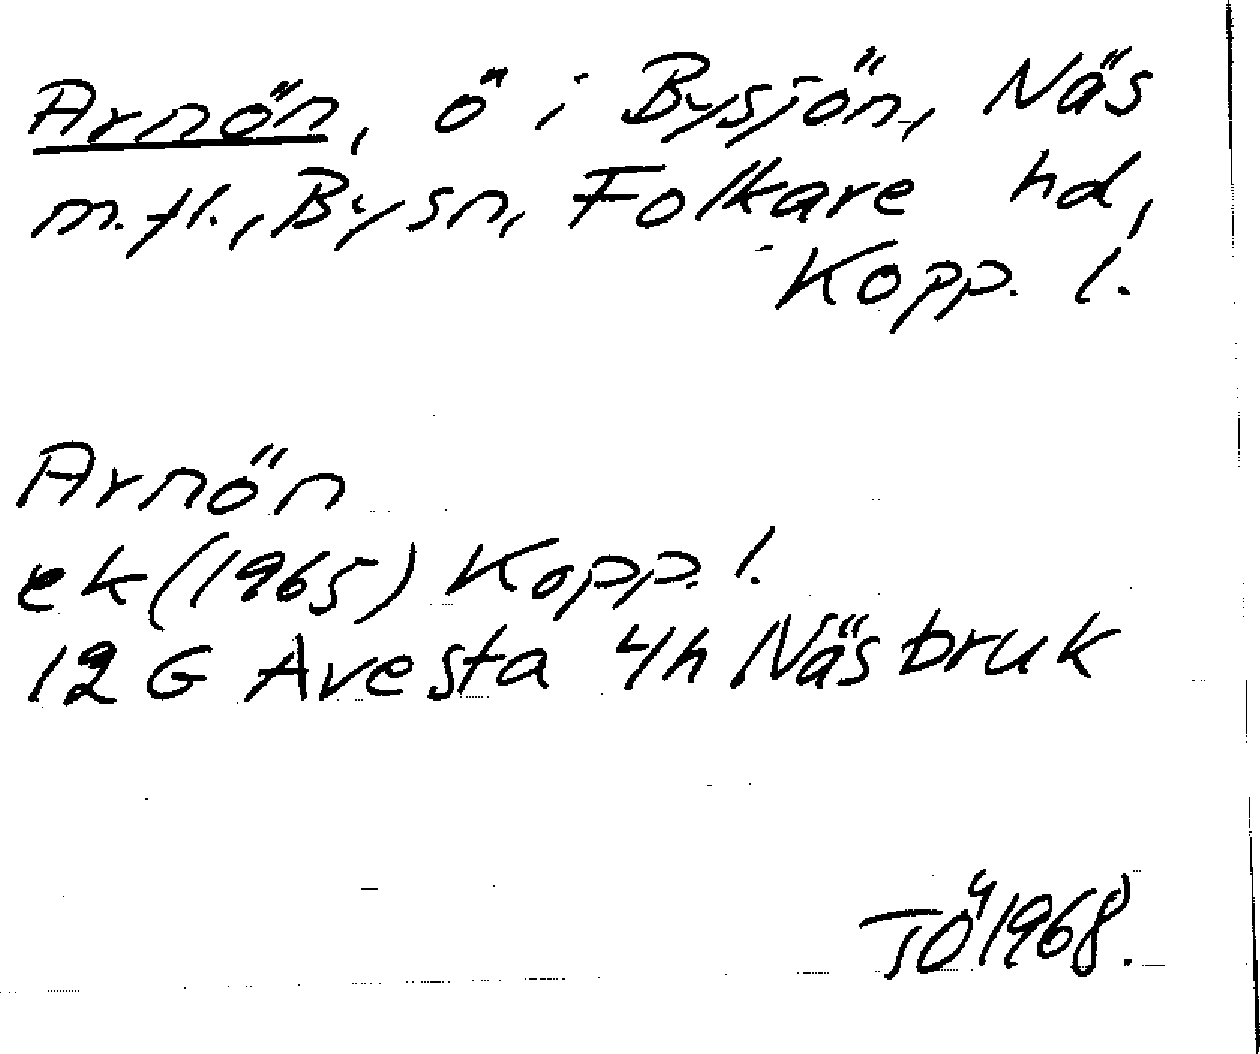 Arnön, ö i Bysjön, Näs
m.fl., By sn, Folkare hd,
Kopp. l.
Arnön
ek (1965) Kopp. l.
12 G Avesta 4h Näs bruk
TÖ 1968.